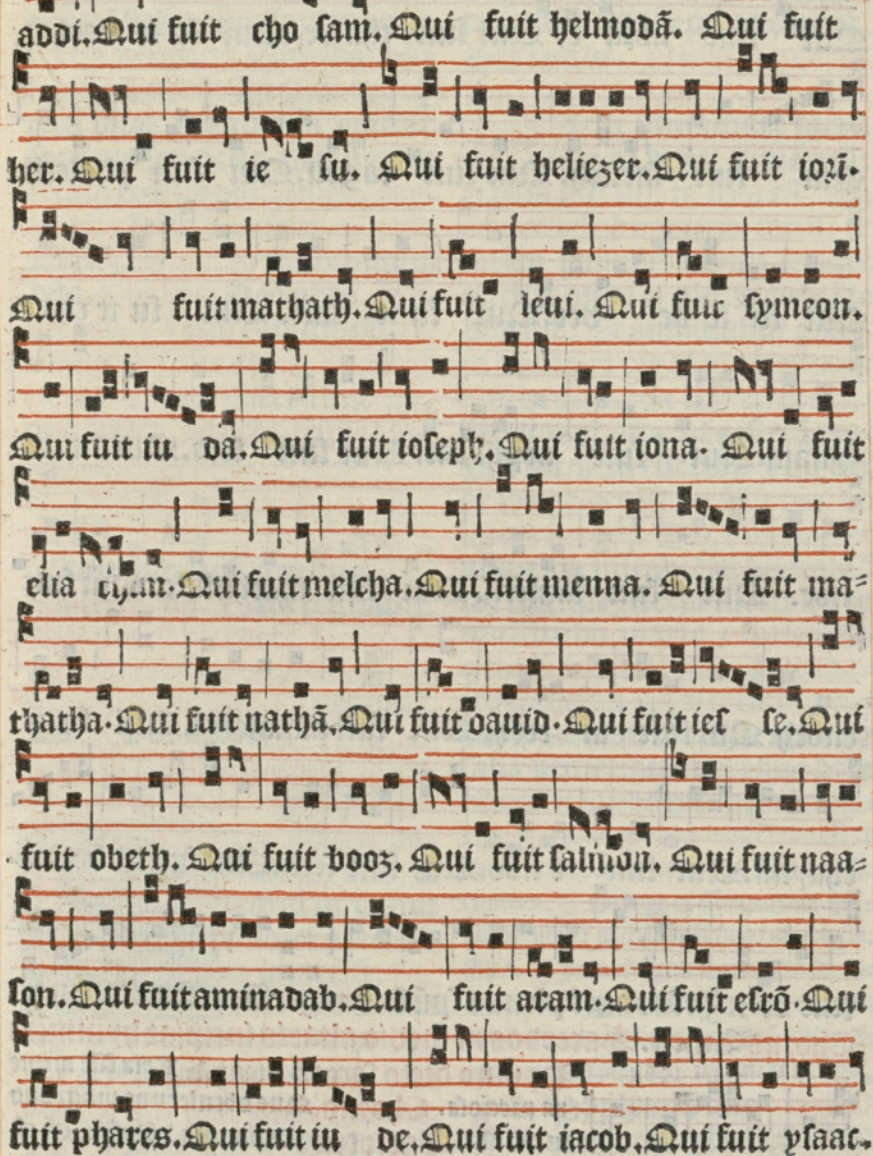 addi. Qui fuit cho sam. Qui fuit helmodã. Qui fuit
her. Qui fuit ie su. Qui fuit heliezer. Qui fuit iorĩ.
Qui fuit mathath. Qui fuit leui. Qui fuit symeon.
Qui fuit iu da. Qui fuit ioseph. Qui fuit iona. Qui fuit
elia chim. Qui fuit melcha. Qui fuit menna. Qui fuit ma=
thatha. Qui fuit nathã. Qui fuit dauid. Qui fuit ies se. Qui
fuit obeth. Qui fuit booz. Qui fuit salmon. Qui fuit naa=
son. Qui fuit aminadab. Qui fuit aram. Qui fuit esrõ. Qui
fuit phares. Qui fuit iu de. Qui fuit iacob. Qui fuit ysaac.